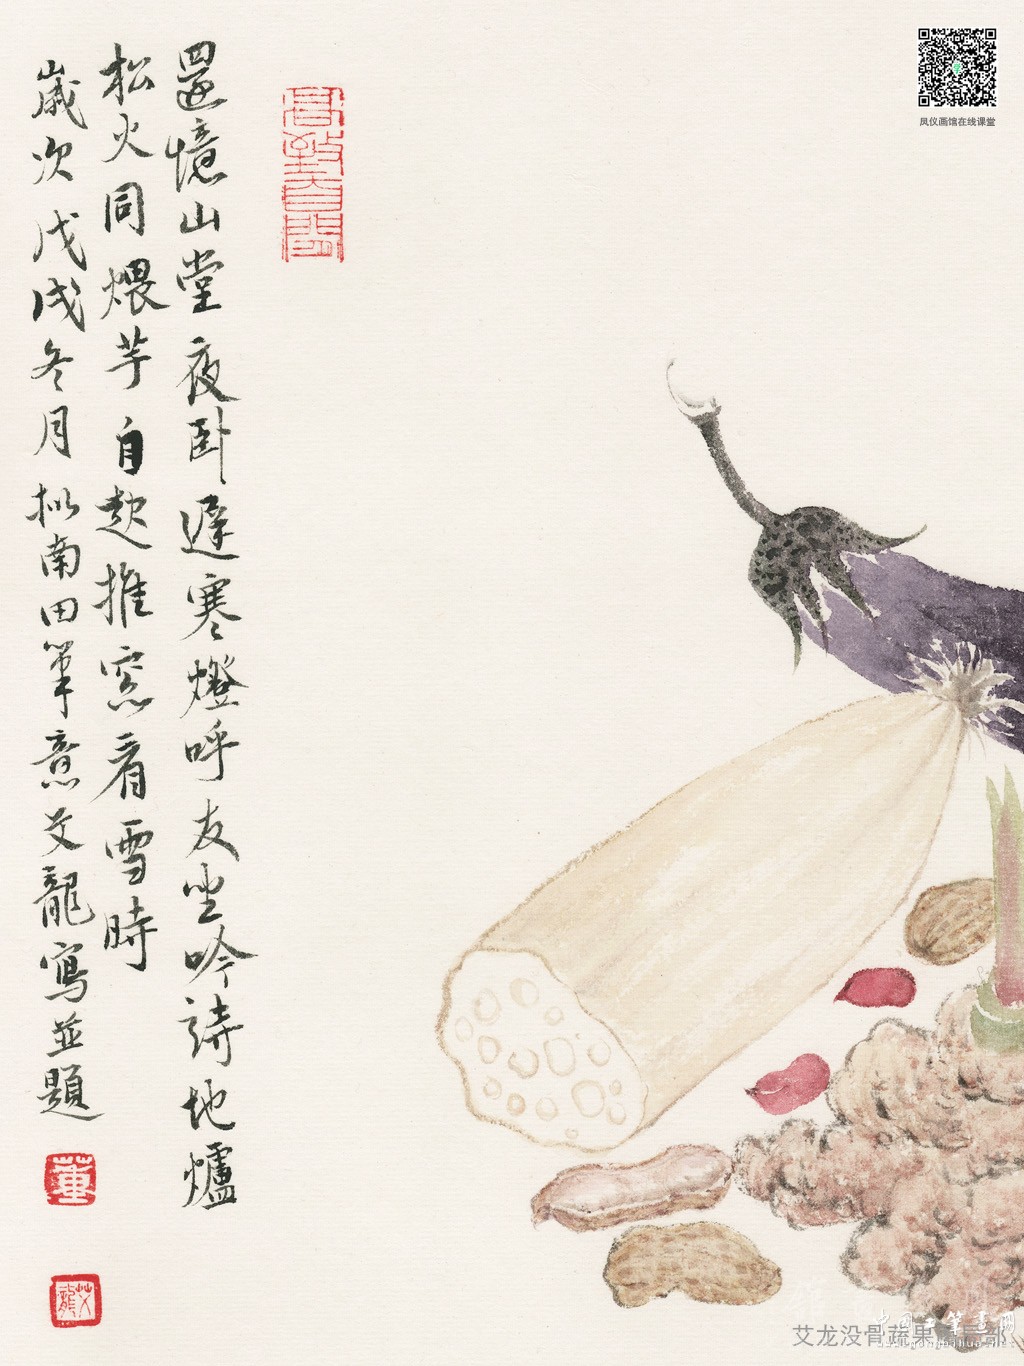 還憶山堂夜卧遲寒燈呼友坐吟詩地爐
松火同煨芋自起推窓看雪時
歲次戊戌冬月拟南田筆意艾龍寫並題
董
艾龍
凤仪画馆在线课堂
艾龙没骨蔬果
中国工筆畫网